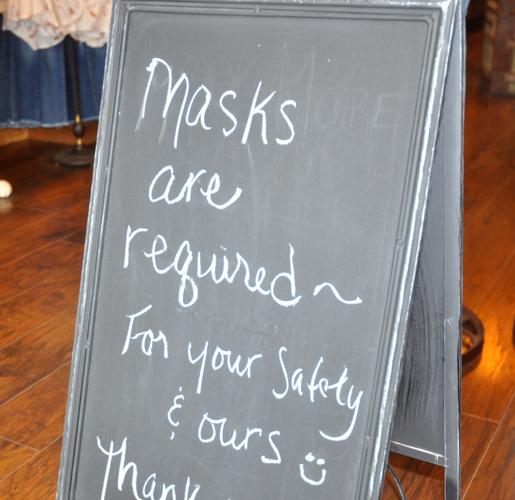 Masks
are
required~
For your Safety
& ours
Thank